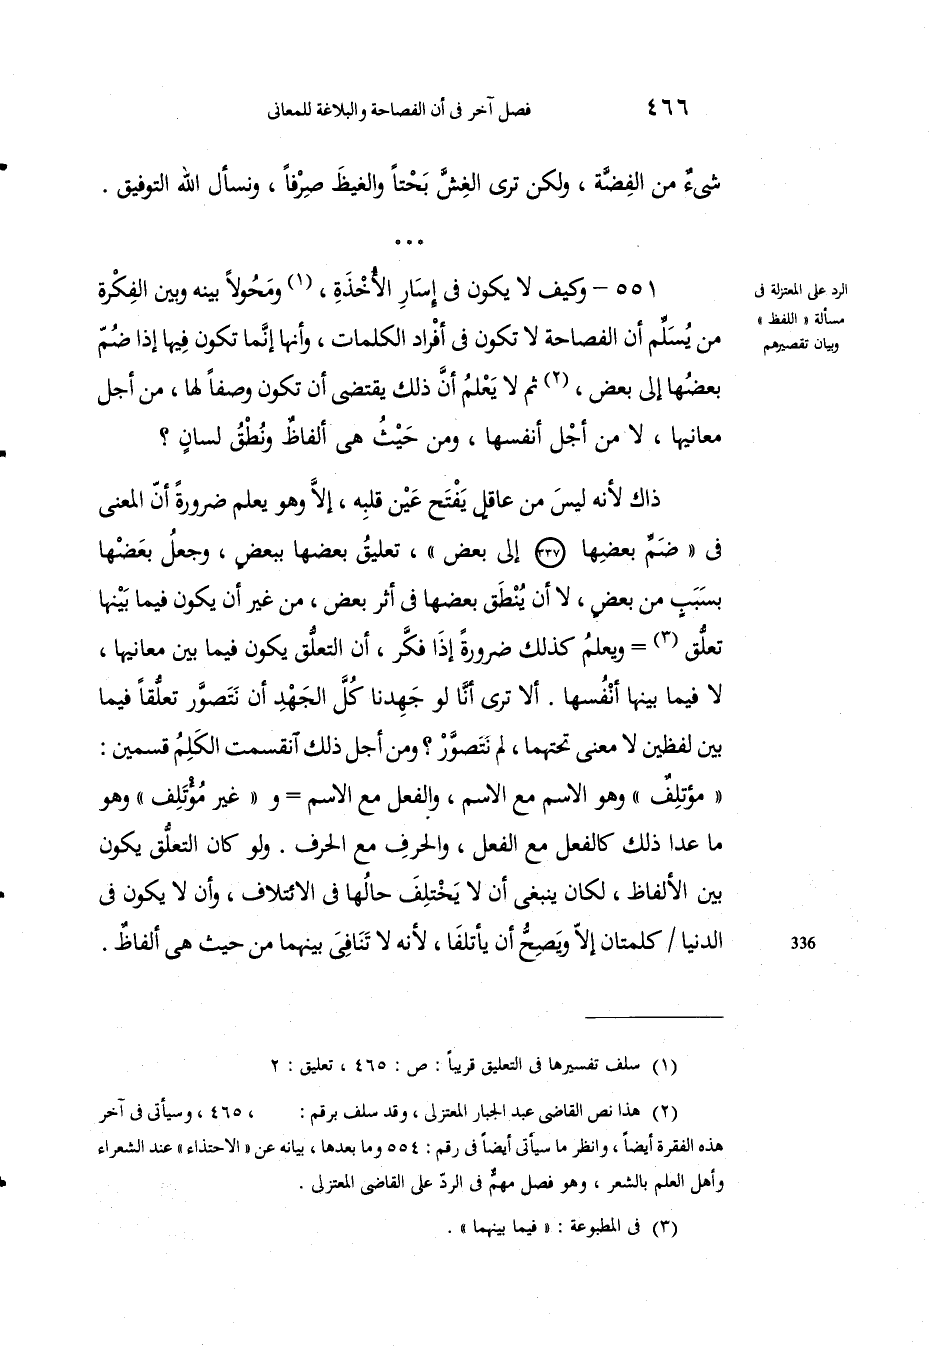 ٤٦٦ فصل آخر فى أن الفصاحة والبلاغة للمعانى
شىءٌ من الفِضَّة ، ولكن ترى الغِشَّ بَحْتاً والغيظَ صِرْفاً ، ونسأل الله التوفيق .
* * *
٥٥١ – وكيف لا يكون فى إسَارِ الأُخْذَةِ ، (١) ومَحُولاً بينه وبين الفِكْرة
من يُسَلِّم أن الفصاحة لا تكون فى أفْراد الكلمات ، وأنها إنَّما تكون فِيها إذا ضُمّ
بعضُها إلى بعض ، (٢) ثم لا يَعْلمُ أنَّ ذلك يقتضى أن تكون وصفاً لها ، من أجل
معانيها ، لا من أجْل أنفسها ، ومن حَيْثُ هى ألفاظٌ ونُطْقُ لسانٍ ؟
الرد على المعتزلة فى
مسألة « اللفظ »
وبيان تقصيرهم
ذاك لأنه ليسَ من عاقلٍ يَفْتَح عَيْن قلبِه ، إلاَّ وهو يعلم ضرورةً أنّ المعنى
فى « ضَمِّ بعضِها ٣٣٧ إلى بعض » ، تعليقُ بعضها ببعضٍ ، وجعلُ بعَضْها
بسَبَبٍ من بعضٍ ، لا أن يُنْطَق بعضها فى أثر بعض ، من غير أن يكون فيما بَيْنها
تعلُّق (٣) = ويعلمُ كذلك ضرورةً إذَا فكَّر ، أن التعلُّق يكون فيما بين معانيها ،
لا فيما بينها أنْفُسها . ألا ترى أنَّا لو جَهِدنا كُلَّ الجَهْدِ أن نَتَصوَّر تعلُّقاً فيما
بين لفظين لا معنى تحتهما ، لم نَتَصوَّرْ ؟ ومن أجل ذلك آنقسمت الكَلِمُ قسمين :
« مؤتلِفٌ » وهو الاسم مع الاسم ، والفعل مع الاسم = و « غير مُؤْتَلِف » وهو
ما عدا ذلك كالفعل مع الفعل ، والحرفِ مع الحرف . ولو كان التعلُّق يكون
بين الألفاظ ، لكان ينبغى أن لا يَخْتلِفَ حالُها فى الائتلاف ، وأن لا يكون فى
الدنيا / كلمتان إلاّ ويَصِحُّ أن يأتلفَا ، لأنه لا تَنَافِىَ بينهما من حيث هى ألفاظٌ .
336
(١) سلف تفسيرها فى التعليق قريباً : ص : ٤٦٥ ، تعليق : ٢
(٢) هذا نص القاضى عبد الجبار المعتزلى ، وقد سلف برقم : ، ٤٦٥ ، وسيأتى فى آخر
هذه الفقرة أيضاً ، وانظر ما سيأتى أيضاً فى رقم : ٥٥٤ وما بعدها ، بيانه عن « الاحتذاء » عند الشعراء
وأهل العلم بالشعر ، وهو فصل مهمٌّ فى الردّ على القاضى المعتزلى .
(٣) فى المطبوعة : « فيما بينهما » .